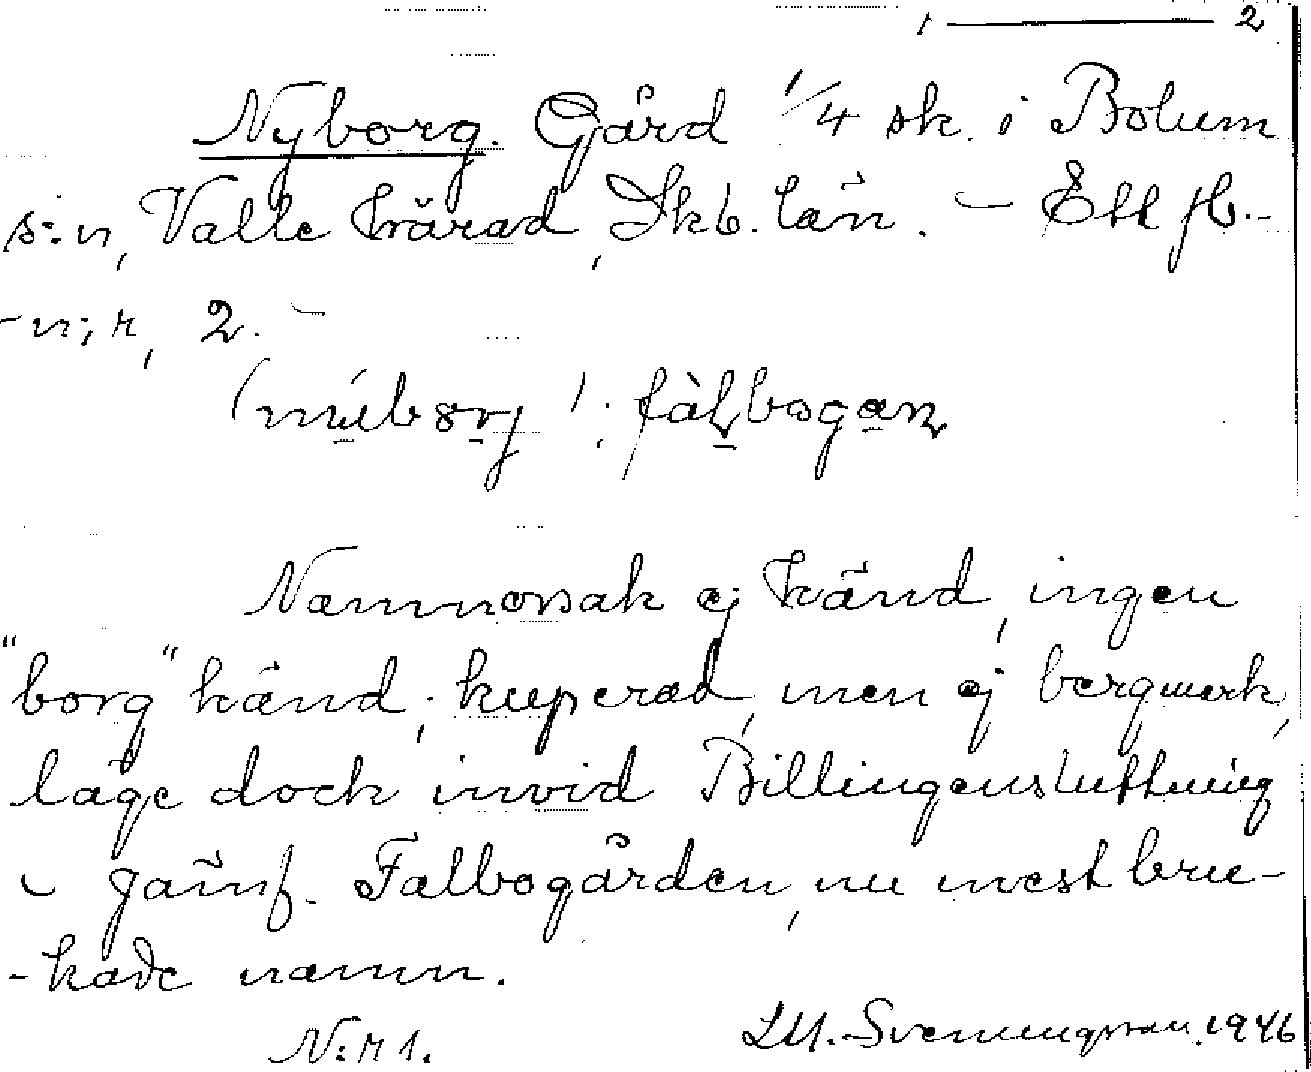 1 — 2
Nyborg. Gård 1/4 sk. i Bolum
s:n, Valle härad, Skb. län. – Ett fb.-
-n:r, 2. –
Namnorsak ej känd, ingen
"borg" känd; kuperad, men ej bergmark,
läge dock invid Billingensluttning
– jämf. Falbogården, nu mest bru-
-kade namn.
N:r 1. LM. Svenungsson. 1946